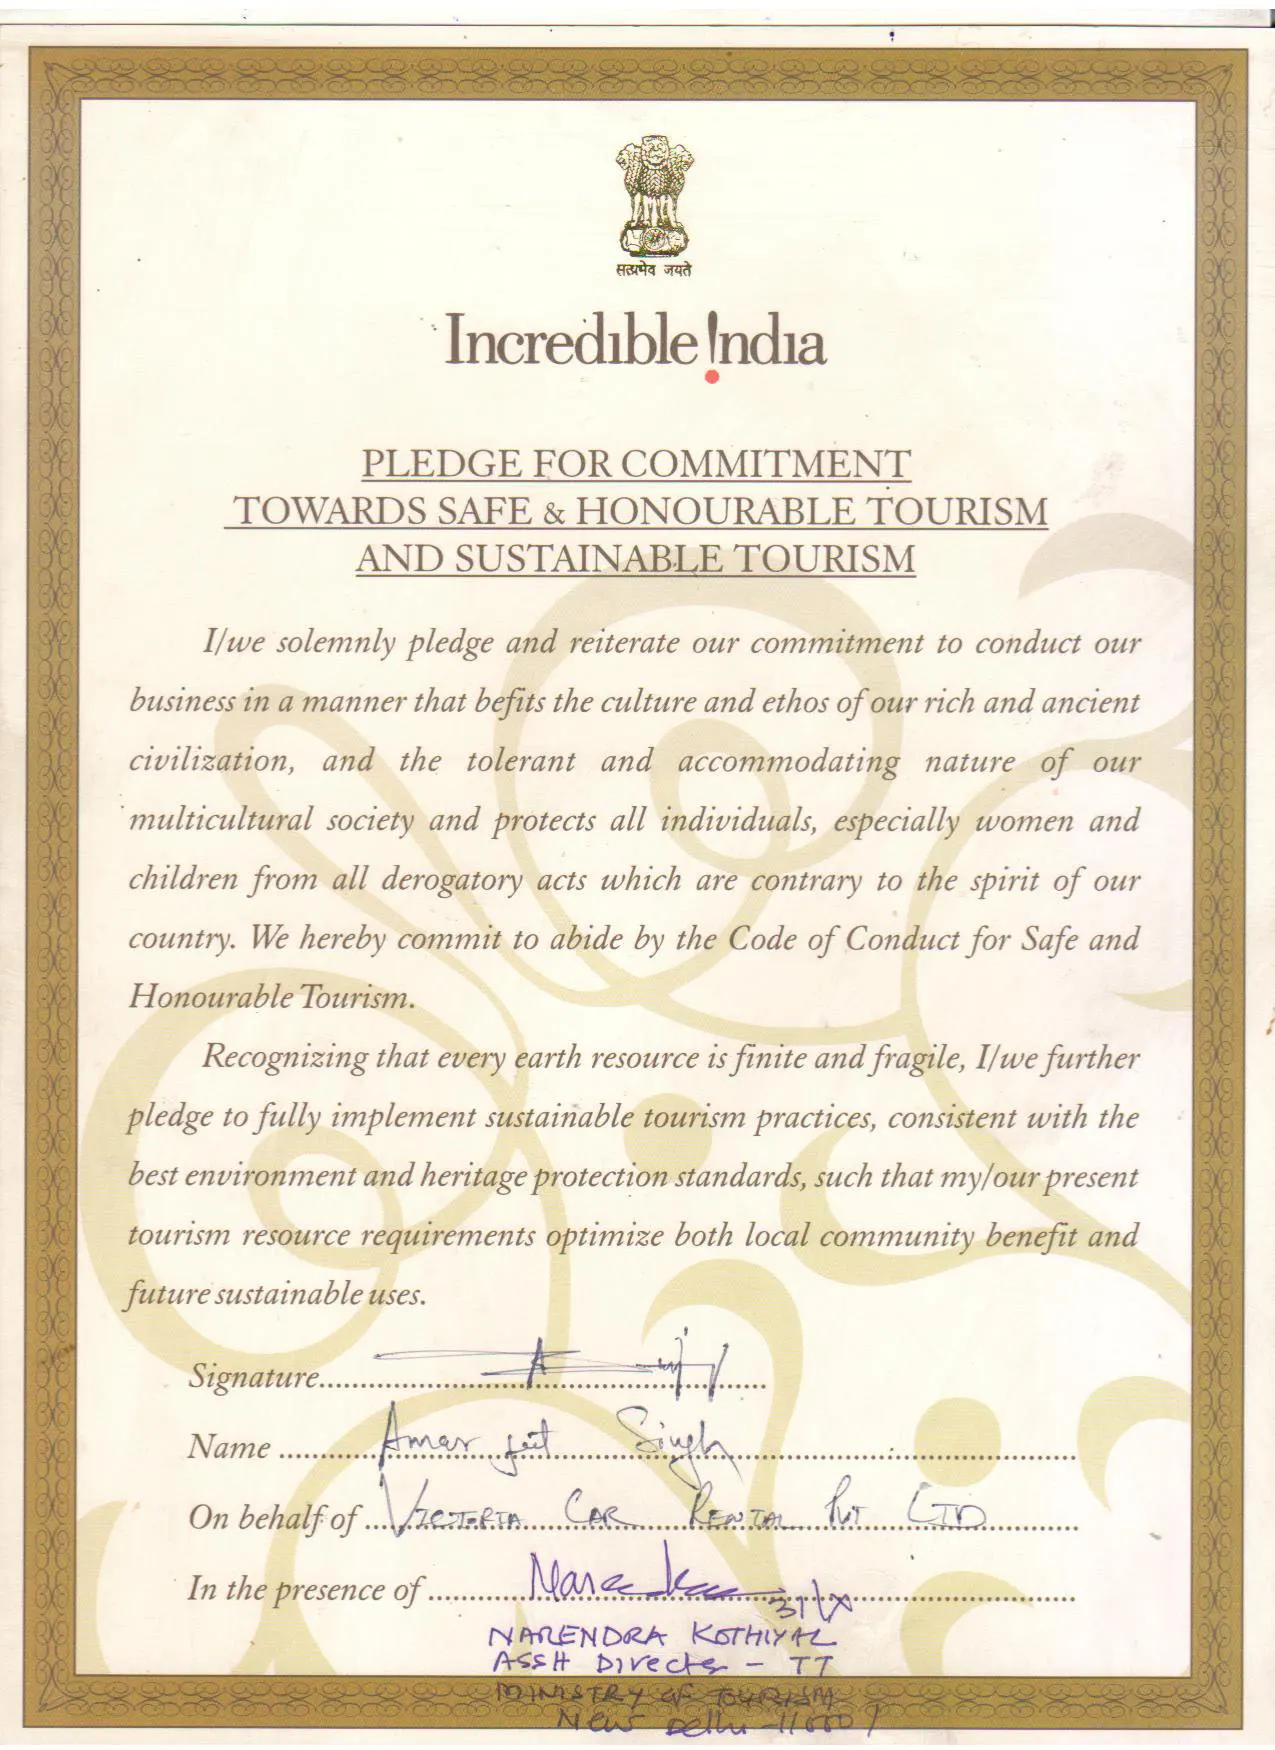 सत्यमेव जयते
Incredible !ndia
PLEDGE FOR COMMITMENT
TOWARDS SAFE & HONOURABLE TOURISM
AND SUSTAINABLE TOURISM
I/we solemnly pledge and reiterate our commitment to conduct our
business in a manner that befits the culture and ethos of our rich and ancient
civilization, and the tolerant and accommodating nature of our
multicultural society and protects all individuals, especially women and
children from all derogatory acts which are contrary to the spirit of our
country. We hereby commit to abide by the Code of Conduct for Safe and
Honourable Tourism.
Recognizing that every earth resource is finite and fragile, I/we further
pledge to fully implement sustainable tourism practices, consistent with the
best environment and heritage protection standards, such that my/our present
tourism resource requirements optimize both local community benefit and
future sustainable uses.
Signature
Name Amarjeet Singh
On behalf of VICTORIA CAR RENTAL Pvt LTD
In the presence of Narendra 31/X
NARENDRA KOTHIYAL
ASSTT Director - TT
MINISTRY OF TOURISM
New Delhi - 110001